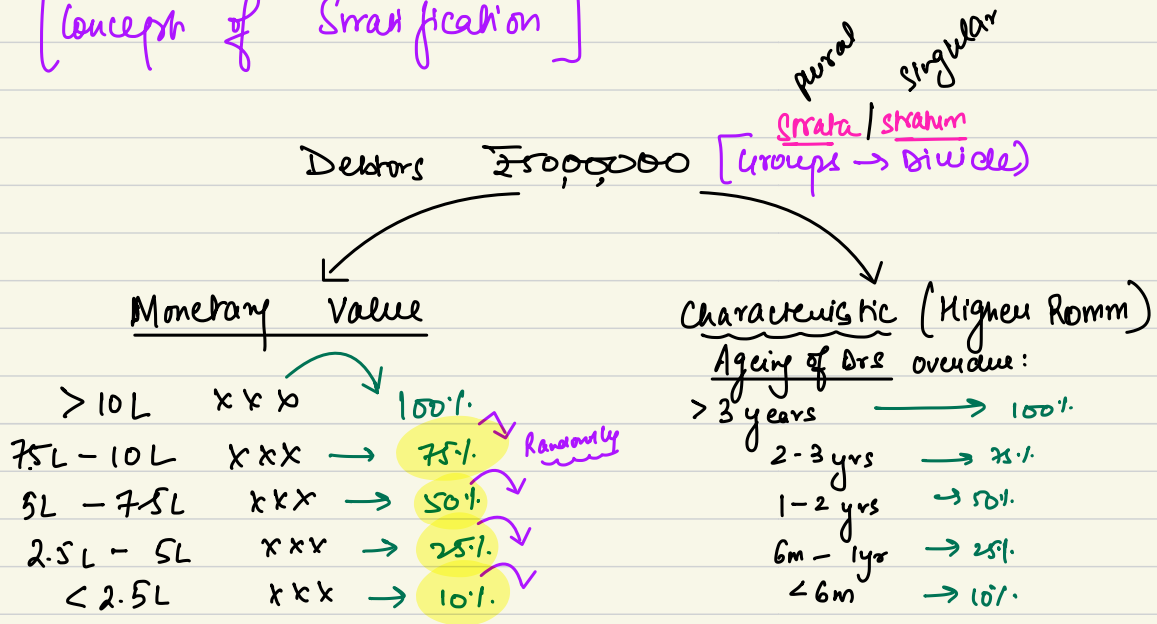 [Concept of Stratification]
pural singular
Strata / stratum
Debtors ₹50,00,000 [Groups → Divide)
Monetary Value
> 10L xxx 100%
7.5L - 10L xxx → 75% Randomly
5L - 7.5L xxx → 50%
2.5L - 5L xxx → 25%
< 2.5L xxx → 10%
Characteristic (Higher Romm)
Ageing of Drs overdue:
> 3 years → 100%
2-3 yrs → 75%
1-2 yrs → 50%
6m - 1yr → 25%
< 6m → 10%